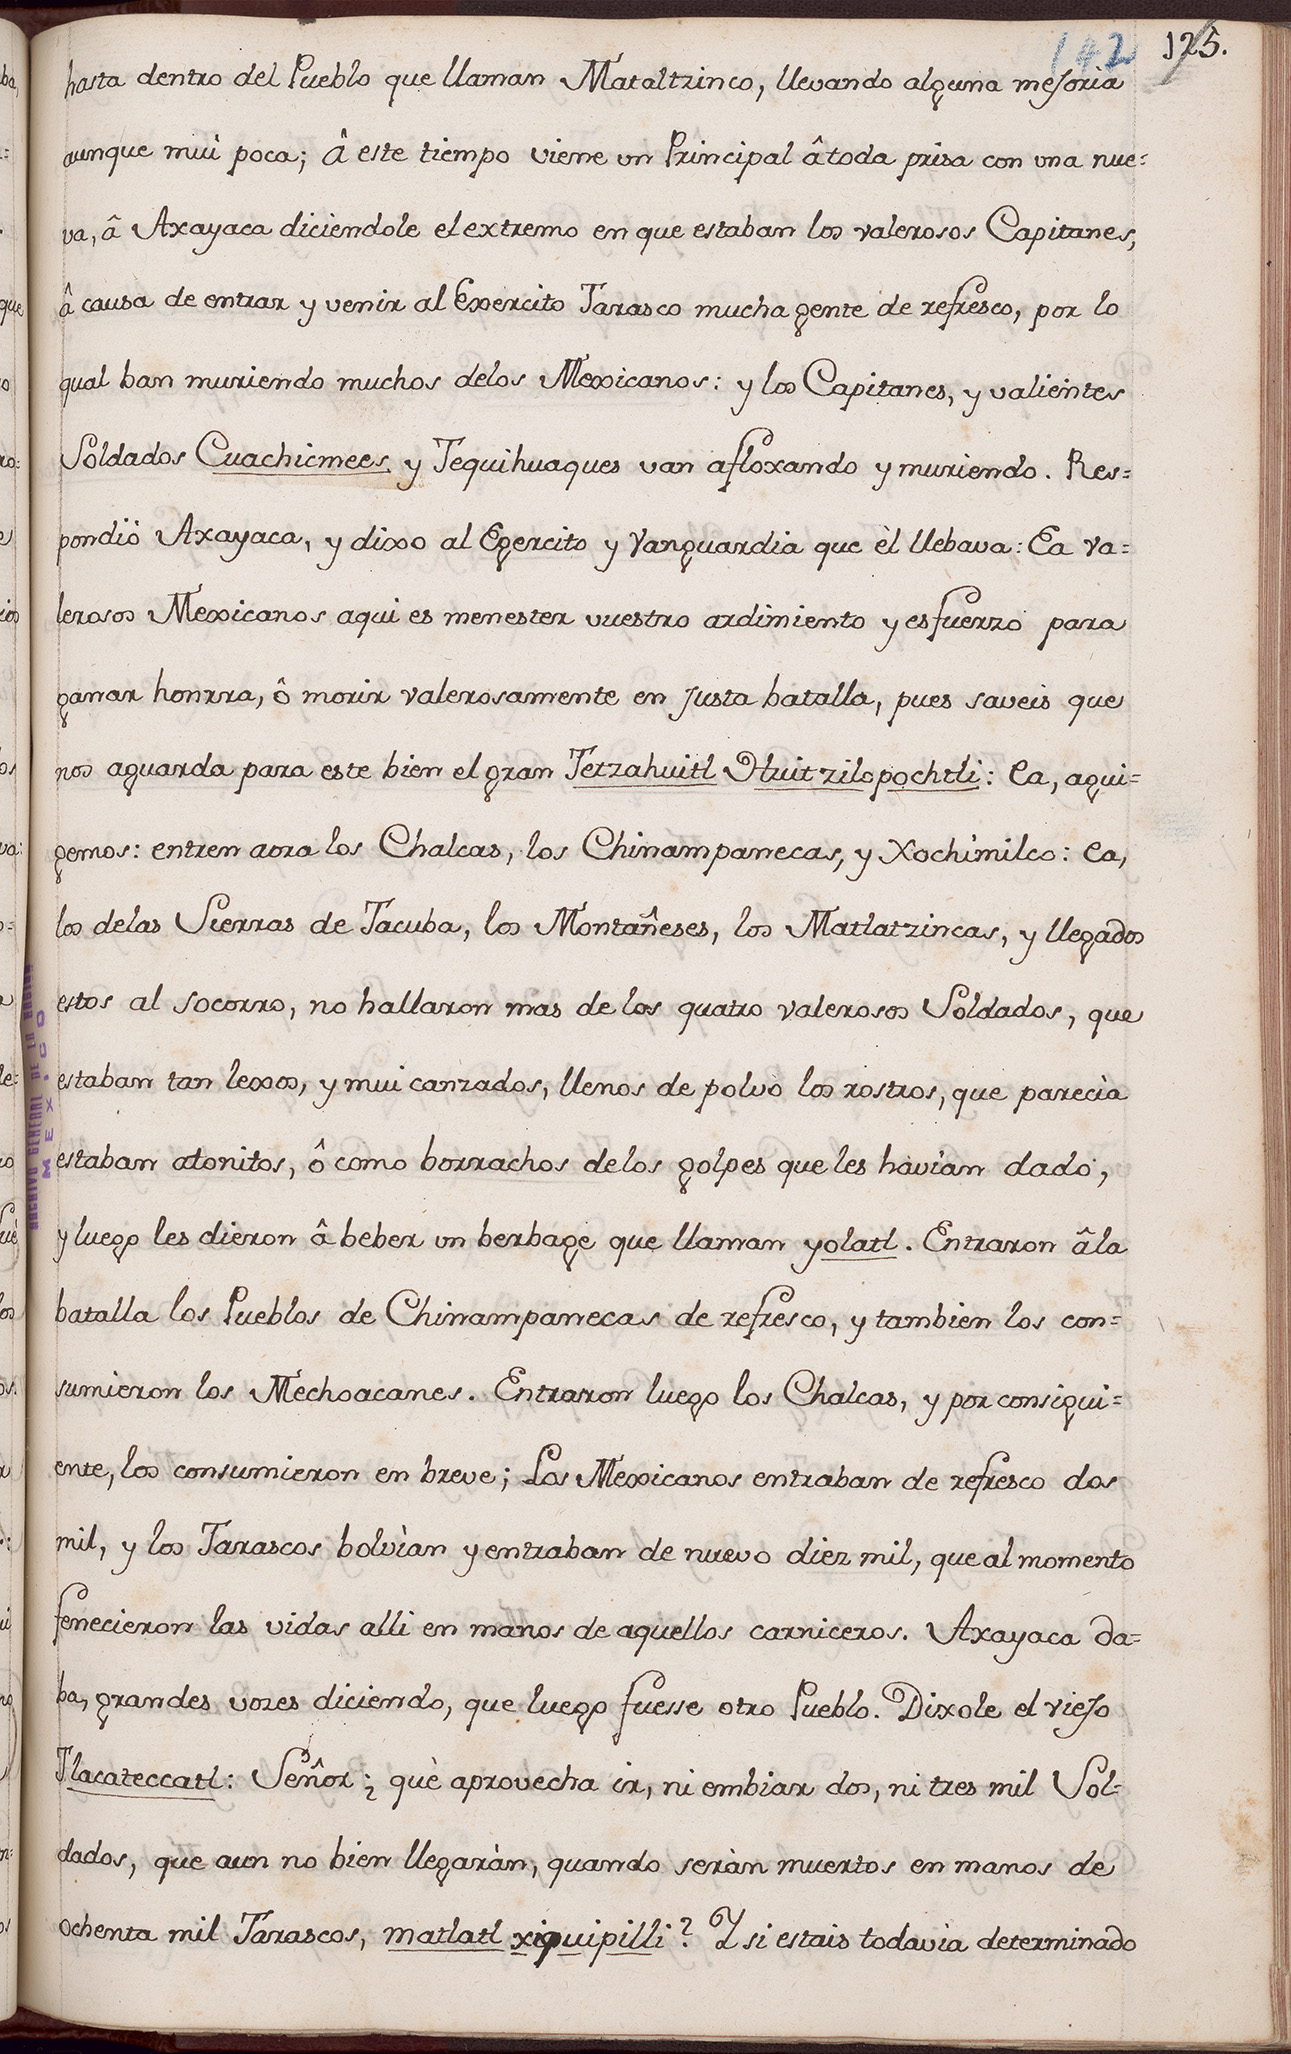 142 125.
hasta dentro del Pueblo que llaman Mataltzinco, llevando alguna mejoria
aunque mui poca; â este tiempo viene un Principal â toda prisa con una nue=
va, â Axayaca diciendole el extremo en que estaban los valerosos Capitanes,
â causa de entrar y venir al Exercito Tarasco mucha gente de refresco, por lo
qual ban muriendo muchos delos Mexicanos: y los Capitanes, y valientes
Soldados Cuachicmees, y Tequihuaques van afloxando y muriendo. Res=
pondió Axayaca, y dixo al Egercito y Vanguardia que èl llebava: Ea va=
lerosos Mexicanos aqui es menester vuestro ardimiento y esfuerzo para
ganar honrra, ô morir valerosamente en justa batalla, pues saveis que
nos aguarda para este bien el gran Tetzahuitl Huitzilopochtli: Ea, agui=
gemos: entren aora los Chalcas, los Chinampanecas, y Xochimilco: Ea,
los delas Sierras de Tacuba, los Montañeses, los Matlatzincas, y llegados
estos al socorro, no hallaron mas de los quatro valerosos Soldados, que
estaban tan lexos, y mui canzados, llenos de polvo los rostros, que parecìa
estaban atonitos, ô como borrachos delos golpes que les havian dado,
y luego les dieron â beber un berbage que llaman yolatl. Entraron âla
batalla los Pueblos de Chinampanecas de refresco, y tambien los con=
sumieron los Mechoacanes. Entraron luego los Chalcas, y por consigui=
ente, los consumieron en breve; Los Mexicanos entraban de refresco dos
mil, y los Tarascos bolvìan y entraban de nuevo diez mil, que al momento
fenecieron las vidas alli en manos de aquellos carniceros. Axayaca da=
ba, grandes vozes diciendo, que luego fuesse otro Pueblo. Dixole el viejo
Tlacateccatl: Señor ¿ què aprovecha ir, ni embiar dos, ni tres mil Sol-
dados, que aun no bien llegaràn, quando seràn muertos en manos de
ochenta mil Tarascos, matlatl xiquipilli? Y si estais todavìa determinado
ARCHIVO GENERAL DE LA NACION
MEXICO